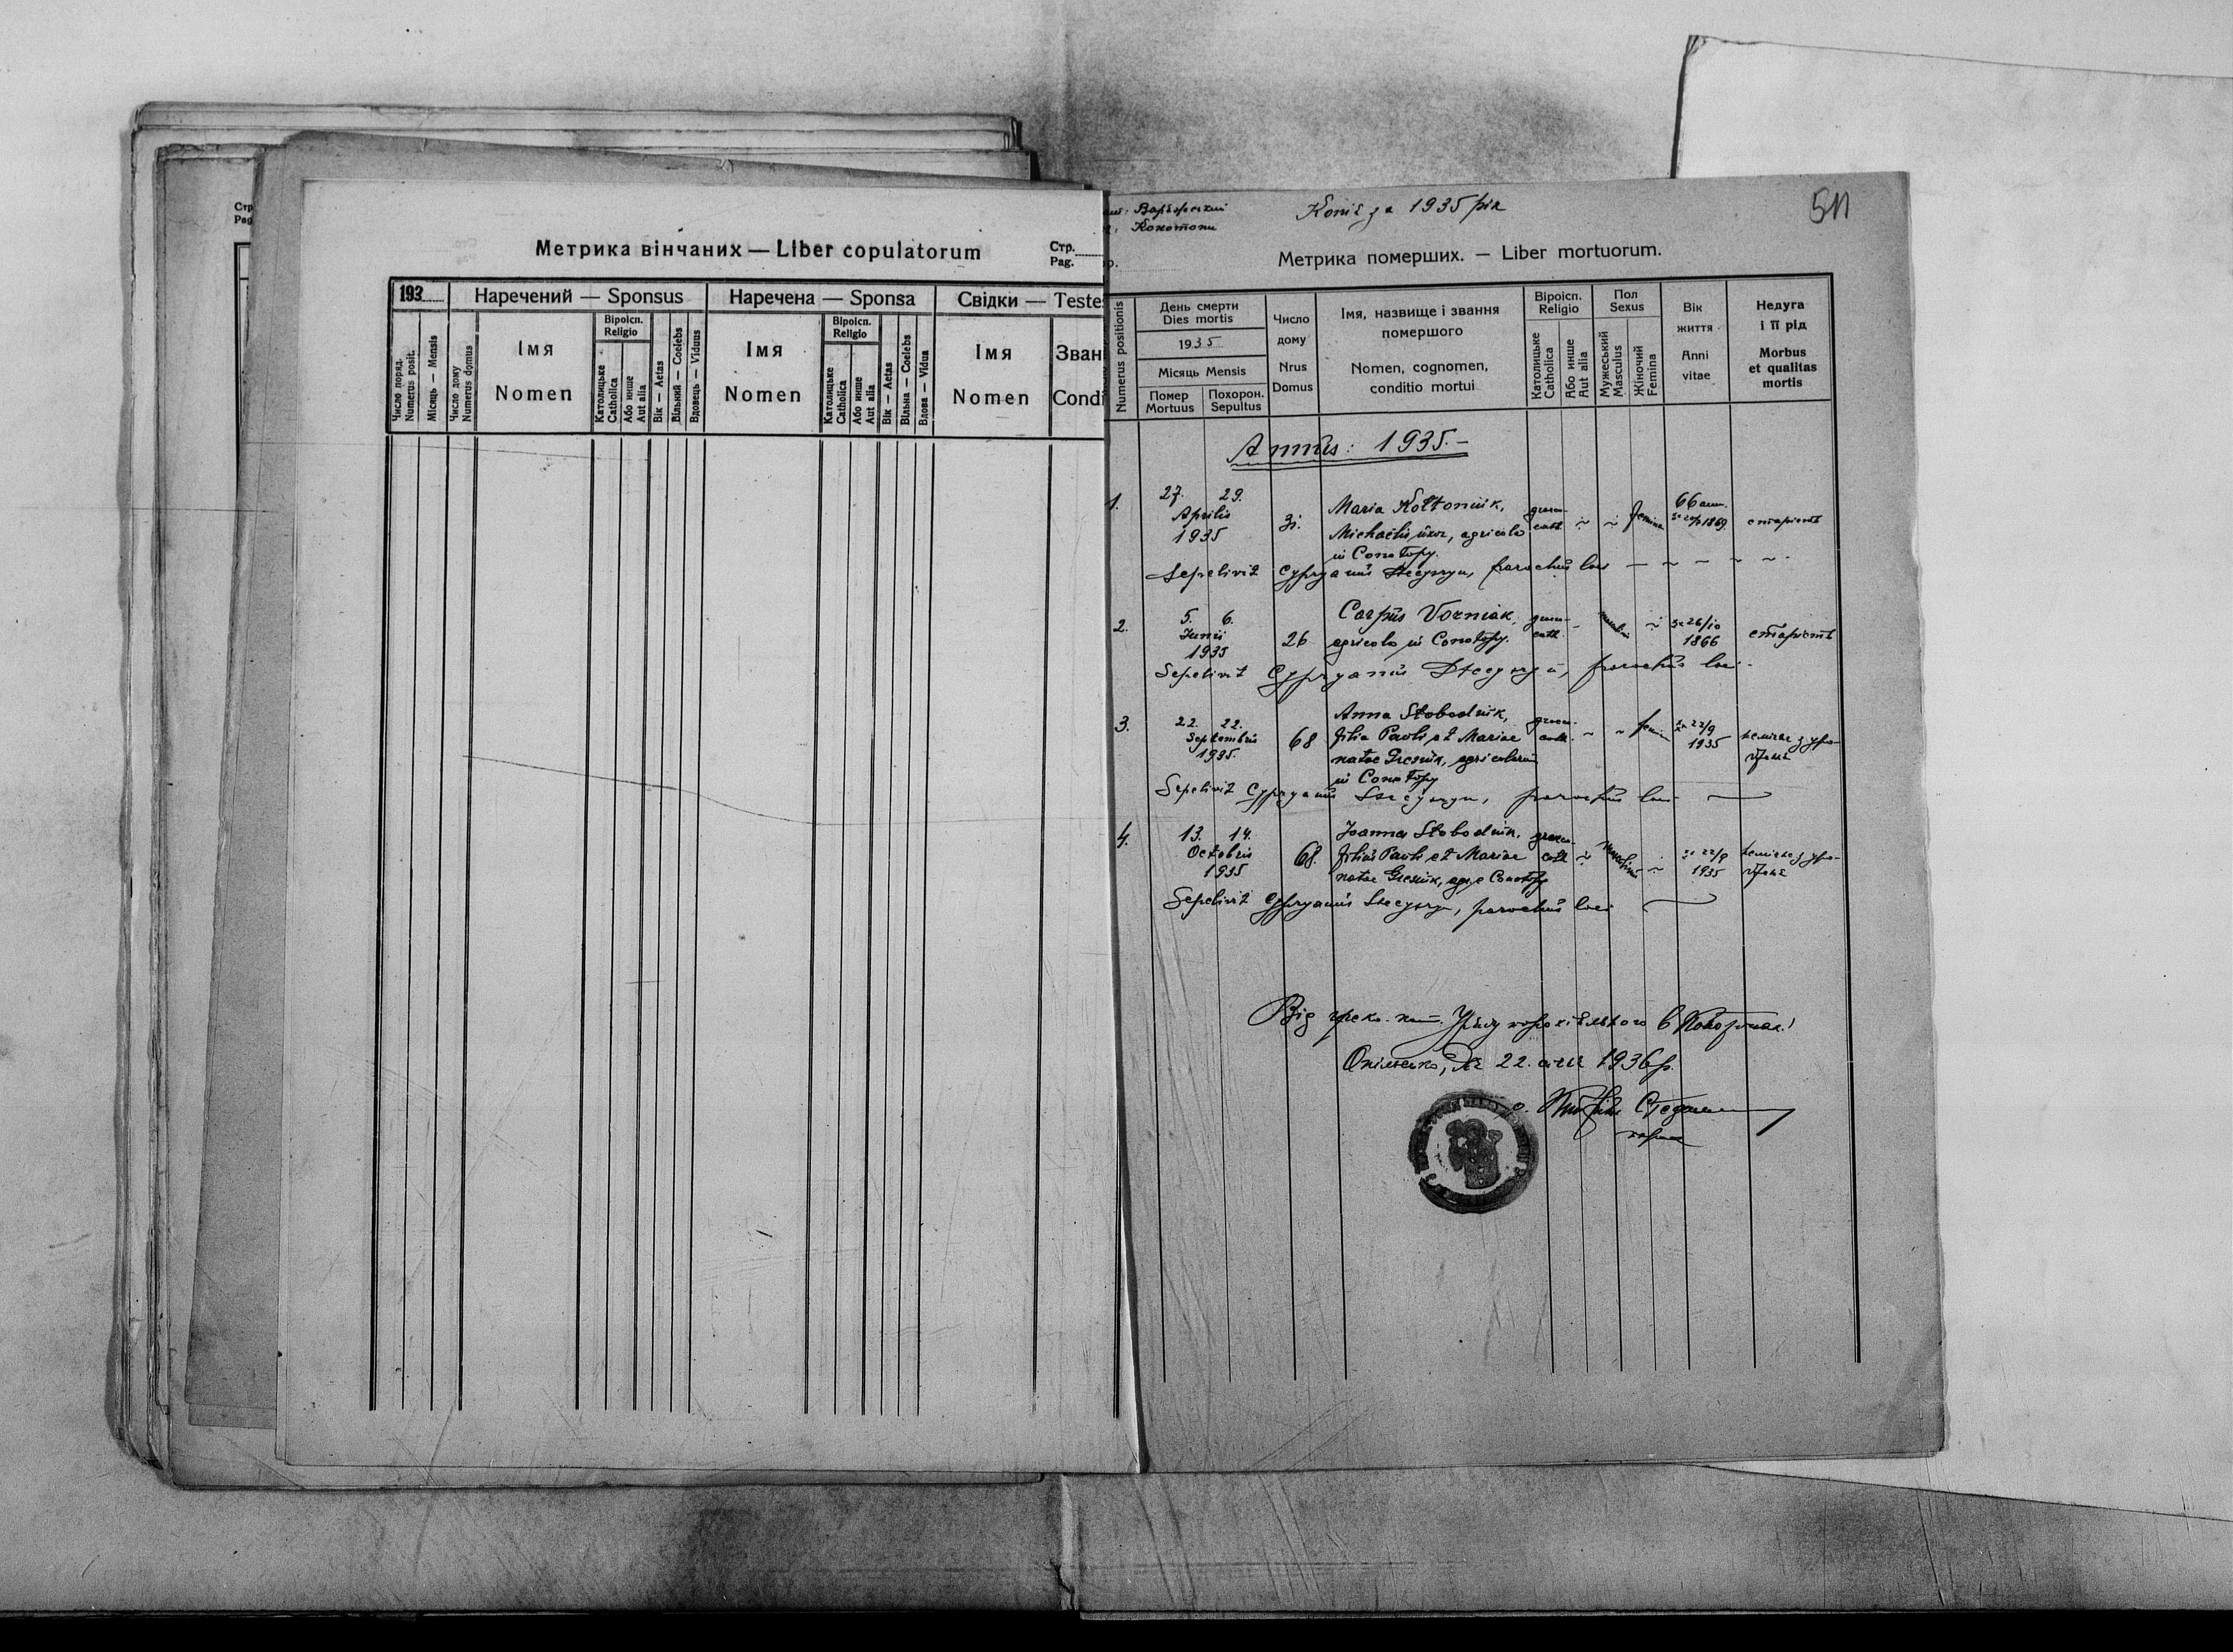 Стр
Pag
Метрика вінчаних — Liber copulatorum
Стр.
Pag.
193
Наречений — Sponsus
Наречена — Sponsa
Свідки — Teste
Число поряд.
Numerus posit.
Місяць — Mensis
Число дому
Numerus domus
Імя
Nomen
Віроісп.
Religio
Католицьке
Catholica
Або инше
Aut alia
Вік — Aetas
Вільний — Coelebs
Вдовець — Viduus
Імя
Nomen
Віроісп.
Religio
Католицьке
Catholica
Або инше
Aut alia
Вік — Aetas
Вільна — Coelebs
Вдова — Vidua
Імя
Nomen
Зван
Condi
Конотопи
Копія за 1935 рік
511
Метрика померших. — Liber mortuorum.
Numerus positionis
День смерти
Dies mortis
1935
Місяць Mensis
Помер
Mortuus
Похорон.
Sepultus
Число
дому
Nrus
Domus
Імя, назвище і звання
помершого
Nomen, cognomen,
conditio mortui
Віроісп.
Religio
Католицьке
Catholica
Або инше
Aut alia
Пол
Sexus
Мужеський
Masculus
Жіночий
Femina
Вік
життя
Anni
vitae
Недуга
і її рід
Morbus
et qualitas
mortis
Annus: 1935.-
1. 27. 29.
Aprilis
1935
31.
Maria Kołtoniuk,
Michaelis uxor, agricola
in Conotopy.
graeco-
cath.
femina
66 ann.
1869
старість
Sepelivit Cypryanus Stecyszyn, parochus loci
2. 5. 6.
Junii
1935
26
Carpus Vozniak,
agricola in Conotopy.
cath.
26/10
1866
старість
Sepelivit Cypryanus Stecyszyn, parochus loci.
3. 22. 22.
Septembris
1935.
68
Anna Słobodiuk,
filia Pauli et Mariae
natae Gresiuk, agricolarum
in Conotopy
graeco-
cath.
femina
22/9
1935
Sepelivit Cypryanus Stecyszyn, parochus loci
4. 13. 14.
Octobris
1935
68.
Joannes Słobodiuk.
filius Pauli et Mariae
natae Gresiuk, agr. e Conotopy
graeco-
cath
22/9
1935
Sepelivit Cypryanus Stecyszyn, parochus loci
Від греко. кат. Уряду парохіяльного в Конотопах!
Опільсько, дня 22. січня 1936 р.
о.
парох